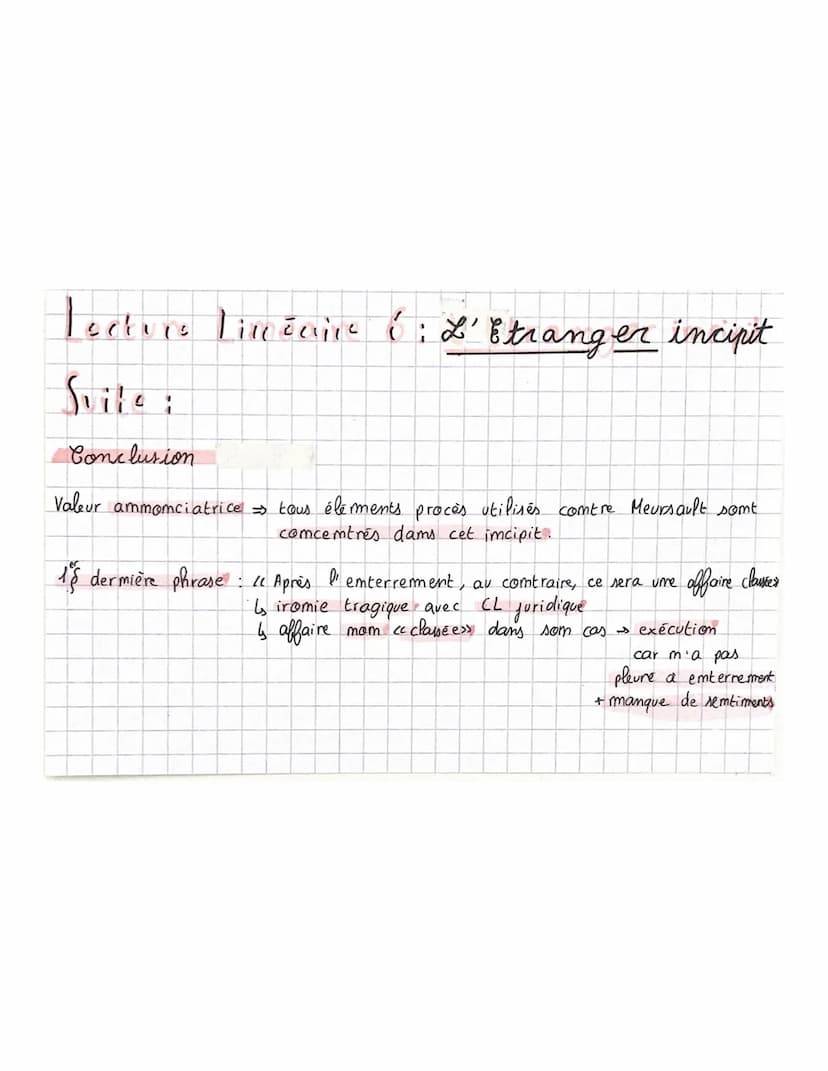 Lecture Linéaire 6 : L'Etranger incipit
Suite :
Conclusion
Valeur annonciatrice ⇒ tous éléments procès utilisés contre Meursault sont
concentrés dans cet incipit.
dernière phrase : « Après l'enterrement, au contraire, ce sera une affaire classée»
↳ ironie tragique avec CL juridique
↳ affaire non «classée» dans son cas → exécution
car n'a pas
pleuré a enterrement
+ manque de sentiments